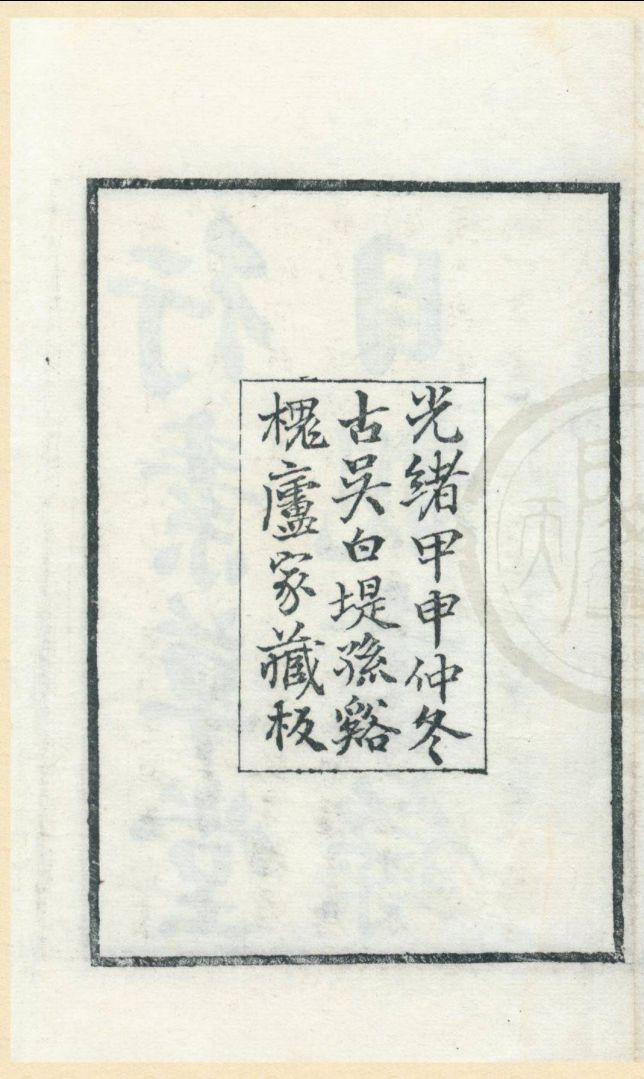 光緒甲申仲冬
古吳白堤孫谿
槐廬家藏板